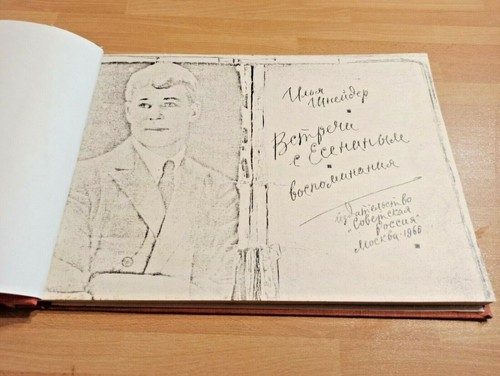 Илья
Шнейдер
Встречи
с Есениным
воспоминания
издательство
"Советская
Россия"
Москва-1968